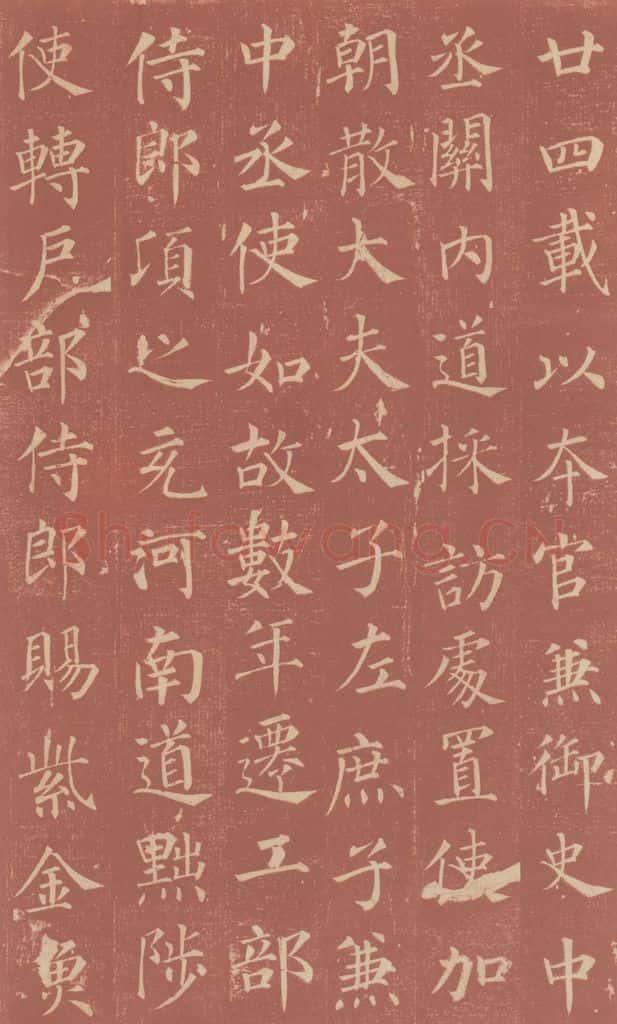 廿四載以本官兼御史中
丞關内道採訪處置使加
朝散大夫太子左庶子兼
中丞使如故數年遷工部
侍郎項之充河南道黜陟
使轉戶部侍郎賜紫金魚
Shufawang.CN